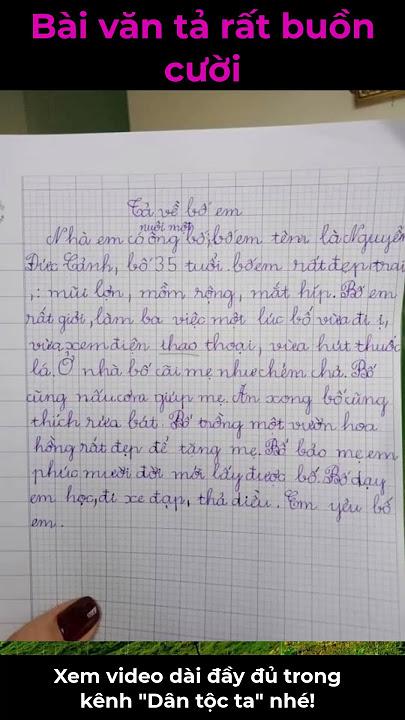 Bài văn tả rất buồn
cười
Tả về bố em
nuôi một
Nhà em có ông bố, bố em tên là Nguyễn
Đức Cảnh, bố 35 tuổi bố em rất đẹp trai
,: mũi lợn, mồm rộng, mắt híp. Bố em
rất giỏi, làm ba việc một lúc bố vừa đi ị,
vừa xem điện thao thoại, vừa hút thuốc
lá. Ở nhà bố cãi mẹ như chém chả. Bố
cũng nấu cơm giúp mẹ. Ăn xong bố cũng
thích rửa bát. Bố trồng một vườn hoa
hồng rất đẹp để tăng mẹ. Bố bảo mẹ em
phúc mười đời mới lấy được bố. Bố dạy
em học, đi xe đạp, thả diều. Em yêu bố
em.
Xem video dài đầy đủ trong
kênh "Dân tộc ta" nhé!